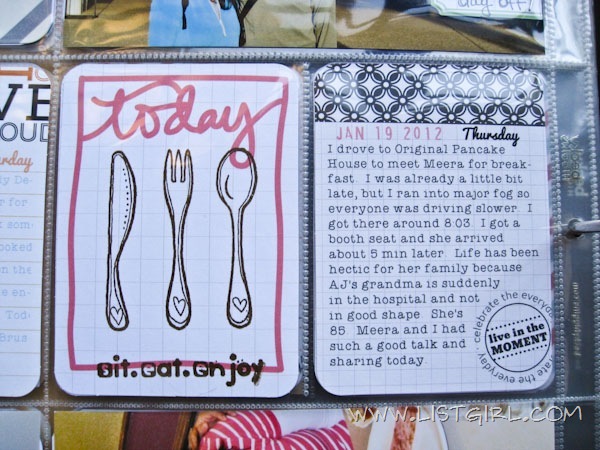 day off!
VE
OUD
urday
ly De-
r for
k som-
ooked
n the
e en-
Tod-
Brus
today
Sit.Eat.Enjoy
JAN 19 2012 Thursday
I drove to Original Pancake
House to meet Meera for break-
fast. I was already a little bit
late, but I ran into major fog so
everyone was driving slower. I
got there around 8:03. I got a
booth seat and she arrived
about 5 min later. Life has been
hectic for her family because
AJ's grandma is suddenly
in the hospital and not
in good shape. She's
85. Meera and I had
such a good talk and
sharing today.
celebrate the everyday
live in the
MOMENT
WWW.LISTGIRL.COM